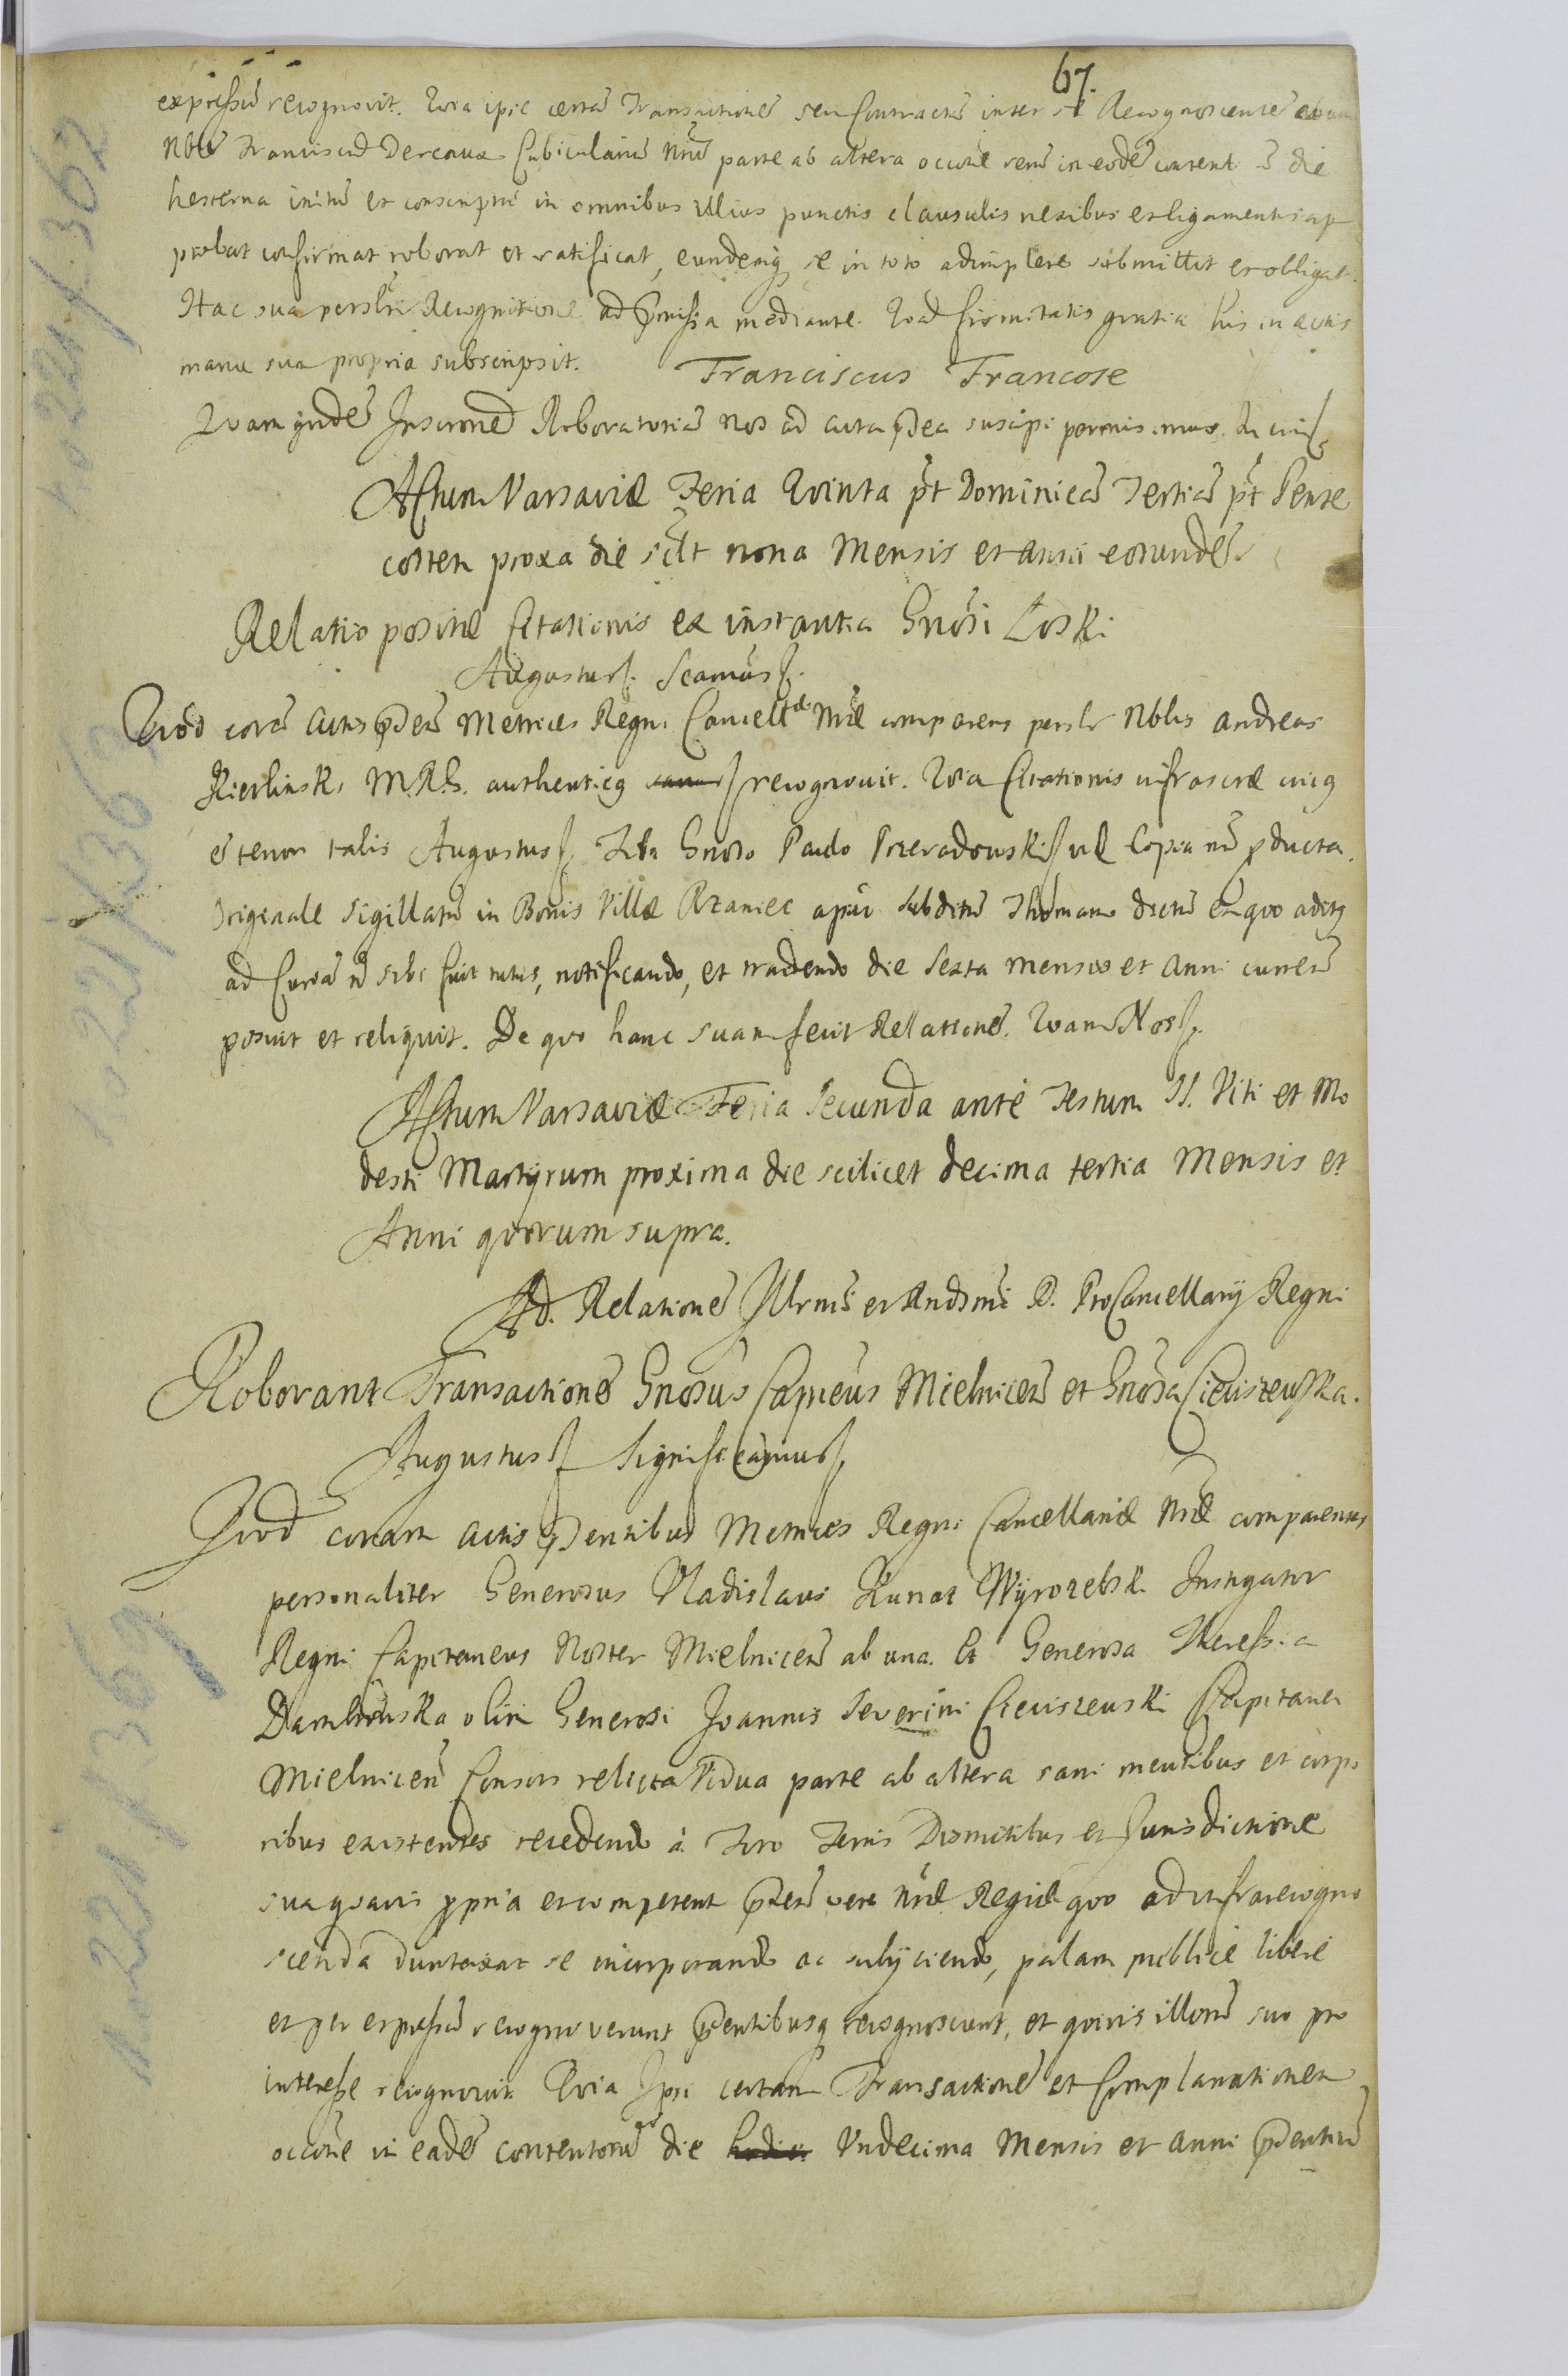 67.
expressū recognovit. Qvia ipse certā Transactionē seu Contractū inter se Recognoscentē ab una
Nblē Franciscū Cubiculariū Nrū parte ab altera occōne rerū in eodē content. die
hesterna initū et conscriptū in omnibus illius punctis clausulis nexibus et ligamentis ap
probat confirmat roborat et ratificat, eundemq se in toto adimplere submittit et obligat.
Hac sua persli Recognitione ad pmissa mediante. Qvod firmitatis gratia his in actis
manu sua propria subscripsit. Franciscus Francose
Qvam qvidē Inscrōnē Roboratoriā nos ad acta pdca suscipi permisimus. In cuiꝭ
Actum Varsaviæ Feria Qvinta pt Dominicā Tertiā pt Pente
costen proxa die scilt nona Mensis et Anni eorundē
Relatio positæ Citationis ex instantia Gnōsi Łoski
Augustusꝭ. Scamusꝭ.
Qvod corā Actis pntibꝰ Metrices Regni Cancellæ Nræ comparens perslr Nblis Andreas
Kierlinski M.R.G. authenticq recognovit. Qvia Citationis infrascræ cuiq
ē tenor talis Augustusꝭ Tibi Gnoso Paulo Przeradowskiꝭ ut Copia nū pducta.
Originale sigillatū in Bonis Villæ Rzaniec apud subditū Thomam dictū ex qvo aditq
ad Curiā nō sibi fuit tutus, notificando, et tradendo die Sexta mensis et Anni currē
posuit et reliqvit. De qvo hanc suam fecit Relationē. Qvam Nosꝭ.
Actum Varsaviæ Feria Secunda ante Festum SS. Viti et Mo
desti Martyrum proxima die scilicet decima tertia Mensis et
Anni qvorum supra.
Ad Relationē Illrmi et Rndsmi D. ProCancellarij Regni
Roborant Transactionē Gnosus Capneus Mielnicen et Gnosa Cieciszewska.
Augustusꝭ Significamusꝭ.
Qvod coram Actis pntibus Metrices Regni Cancellariæ Nræ comparentes
personaliter Generosus Vladislaus Kunat Wyrozebski Instigator
Regni Capitaneus Noster Mielnicen ab una. Et Generosa Theressia
Dambrowska olim Generosi Joannis Severini Cieciszewski Capitanei
Mielnicen Consors relicta Vidua parte ab altera sani mentibus et corpo
ribus existentes recedendo à Foro Terris Districtibus et Jurisdictione
sua qvavis ppria et competent. pnti vero Nræ Regiæ qvo ad infrarecogno
scenda duntaxat se incorporando ac subijciendo, palam publicè liberè
et per expressū recognoverunt pntibusq recognoscunt, et qvivis illorū suo pro
interesse recognovit. Qvia Ipsi certam Transactionē et Complanationem
occōne in eadē contentorū die Vndecima Mensis et Anni pntiū